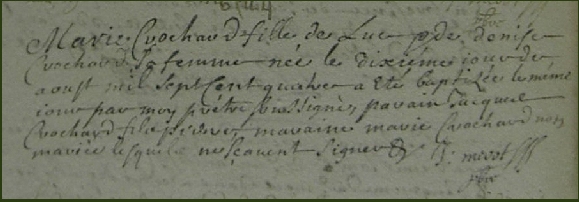 Marie Crochard fille de Luc & de denise
Crochard sa femme née le dixiéme jour de
aoust mil sept cent quatre a eté baptisée le méme
jour par moy prétre soussigné, parain Jacque
Crochard fils maraine marie Crochard non
mariée lesquels ne sçavent signer